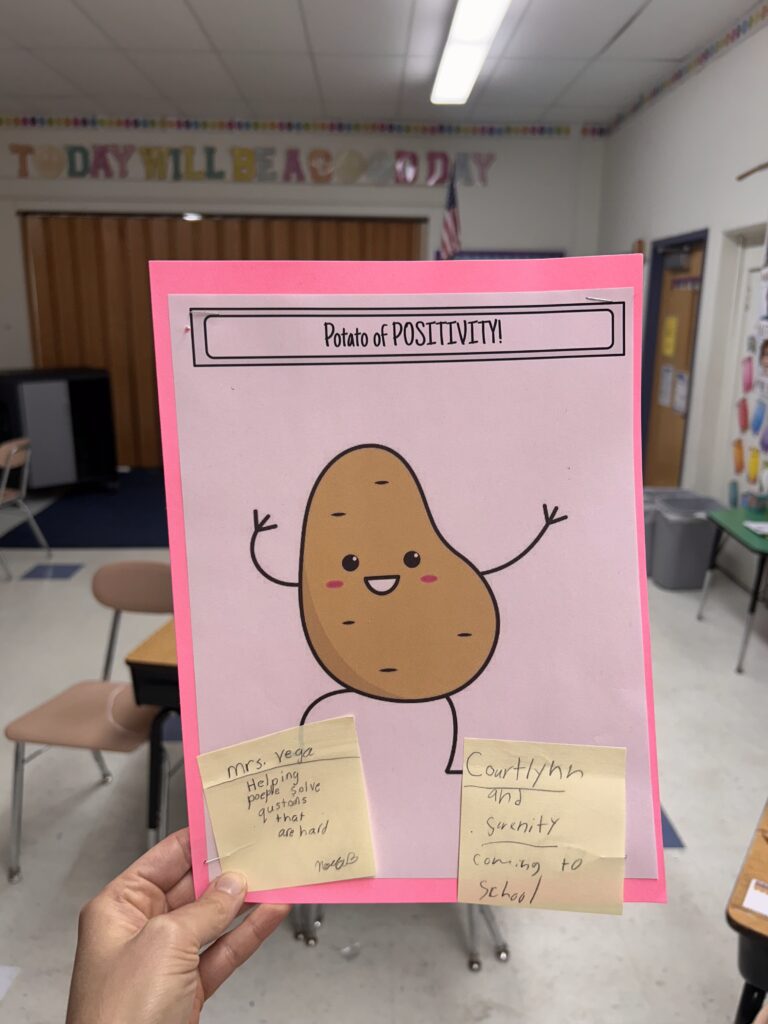 TODAY WILL BE A GOOD DAY
Potato of POSITIVITY!
mrs. vega
Helping
poeple solve
qustons
that
are hard
Courtlynn
and
Serenity
coming to
School